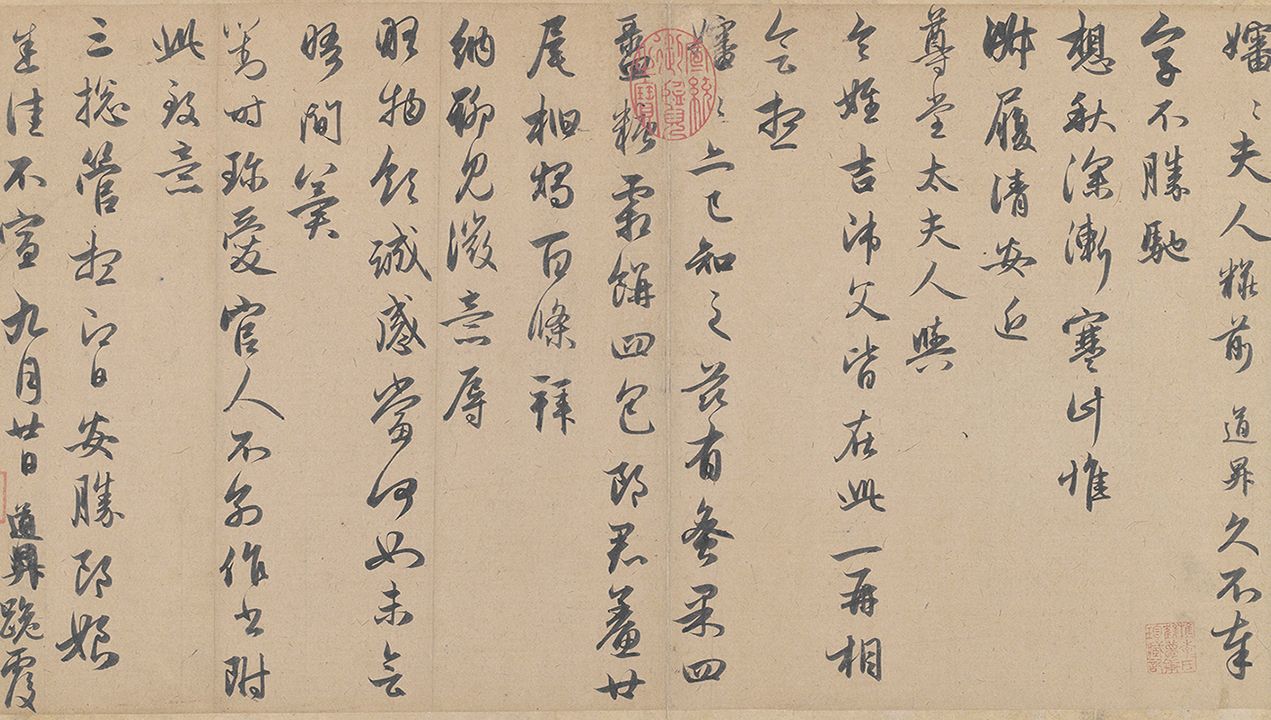 嬸〻夫人糚前 道昇久不奉
字不勝馳
想秋深漸寒計惟
淑履清安近
尊堂太夫人與
令姪吉師父皆在此一再相
會想
嬸〻亦已知之茲有蜜果四
盝糖霜餅四包郎君鯗廿
尾柏燭百條拜
納聊見微意辱
物領誠感當何如未會
晤間冀
對時珍愛官人不別作書附
此致意
三總管想即日安勝郎娘
悉佳不宣九月廿日 道昇跪覆
宣統御覽之寶